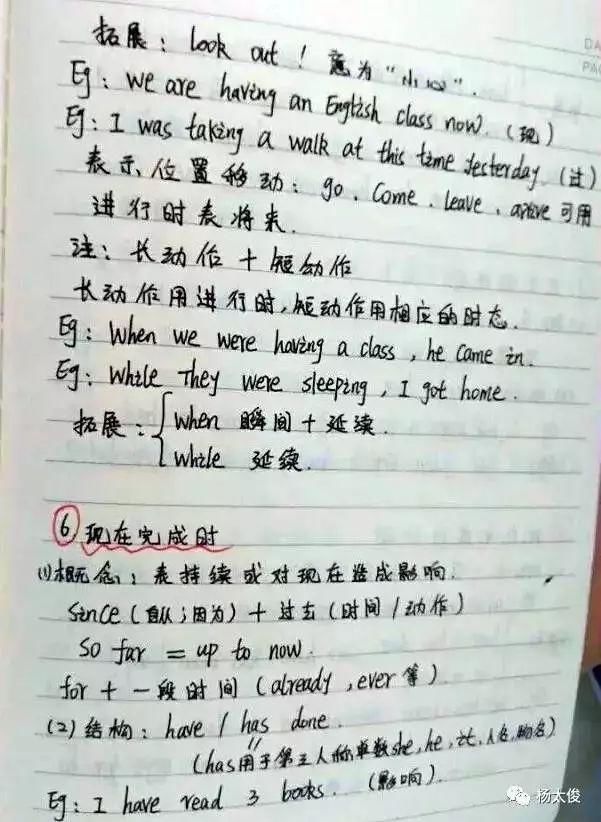 拓展：look out！意为"小心".
DA
PAG
Eg：we are having an English class now.（现）
Eg：I was taking a walk at this time yesterday.（过）
表示位置移动：go、come、leave、arrive 可用
进行时表将来.
注：长动作＋短动作
长动作用进行时,短动作用相应的时态.
Eg：When we were having a class, he came in.
Eg：While they were sleeping, I got home.
拓展：{ when 瞬间＋延续.
while 延续.
⑥ 现在完成时
(1)概念：表持续或对现在造成影响.
since（自从；因为）＋过去（时间/动作）
so far = up to now.
for＋一段时间（already, ever 等）
(2)结构：have / has done.
(has用于第三人称单数she, he, it, 人名, 物名)
Eg：I have read 3 books.（影响）.
杨太俊